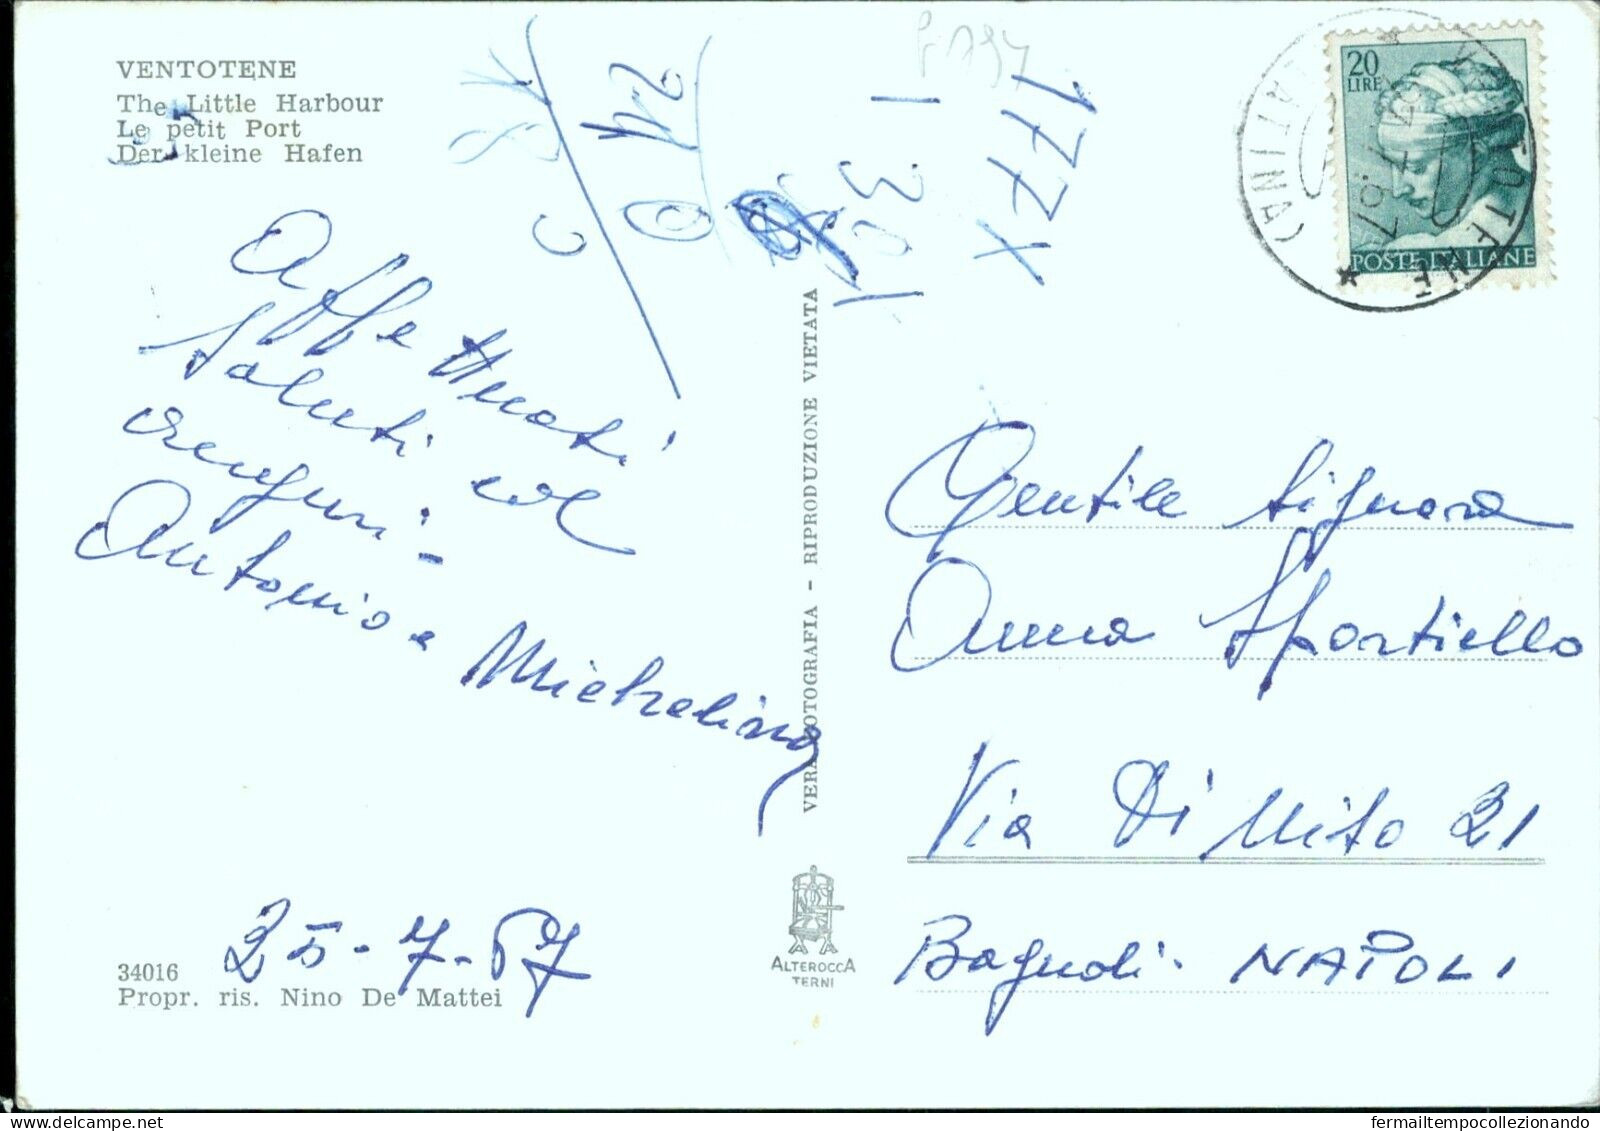 VENTOTENE
The Little Harbour
Le petit Port
Der kleine Hafen
177X
1
301
24
0
Affettuosi
saluti ed
auguri -
Antonio e Michelina
25-7-67
34016
Propr. ris. Nino De Mattei
VERA FOTOGRAFIA - RIPRODUZIONE VIETATA
ALTEROCCA
TERNI
20
LIRE
POSTE ITALIANE
VENTOTENE
(LATINA)
Gentile Signora
Anna Sportiello
Via Di Mito 21
Bagnoli - NAPOLI
fermailtempocollezionando